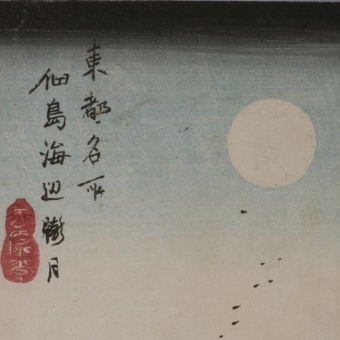 東都名所
佃島海辺朧月